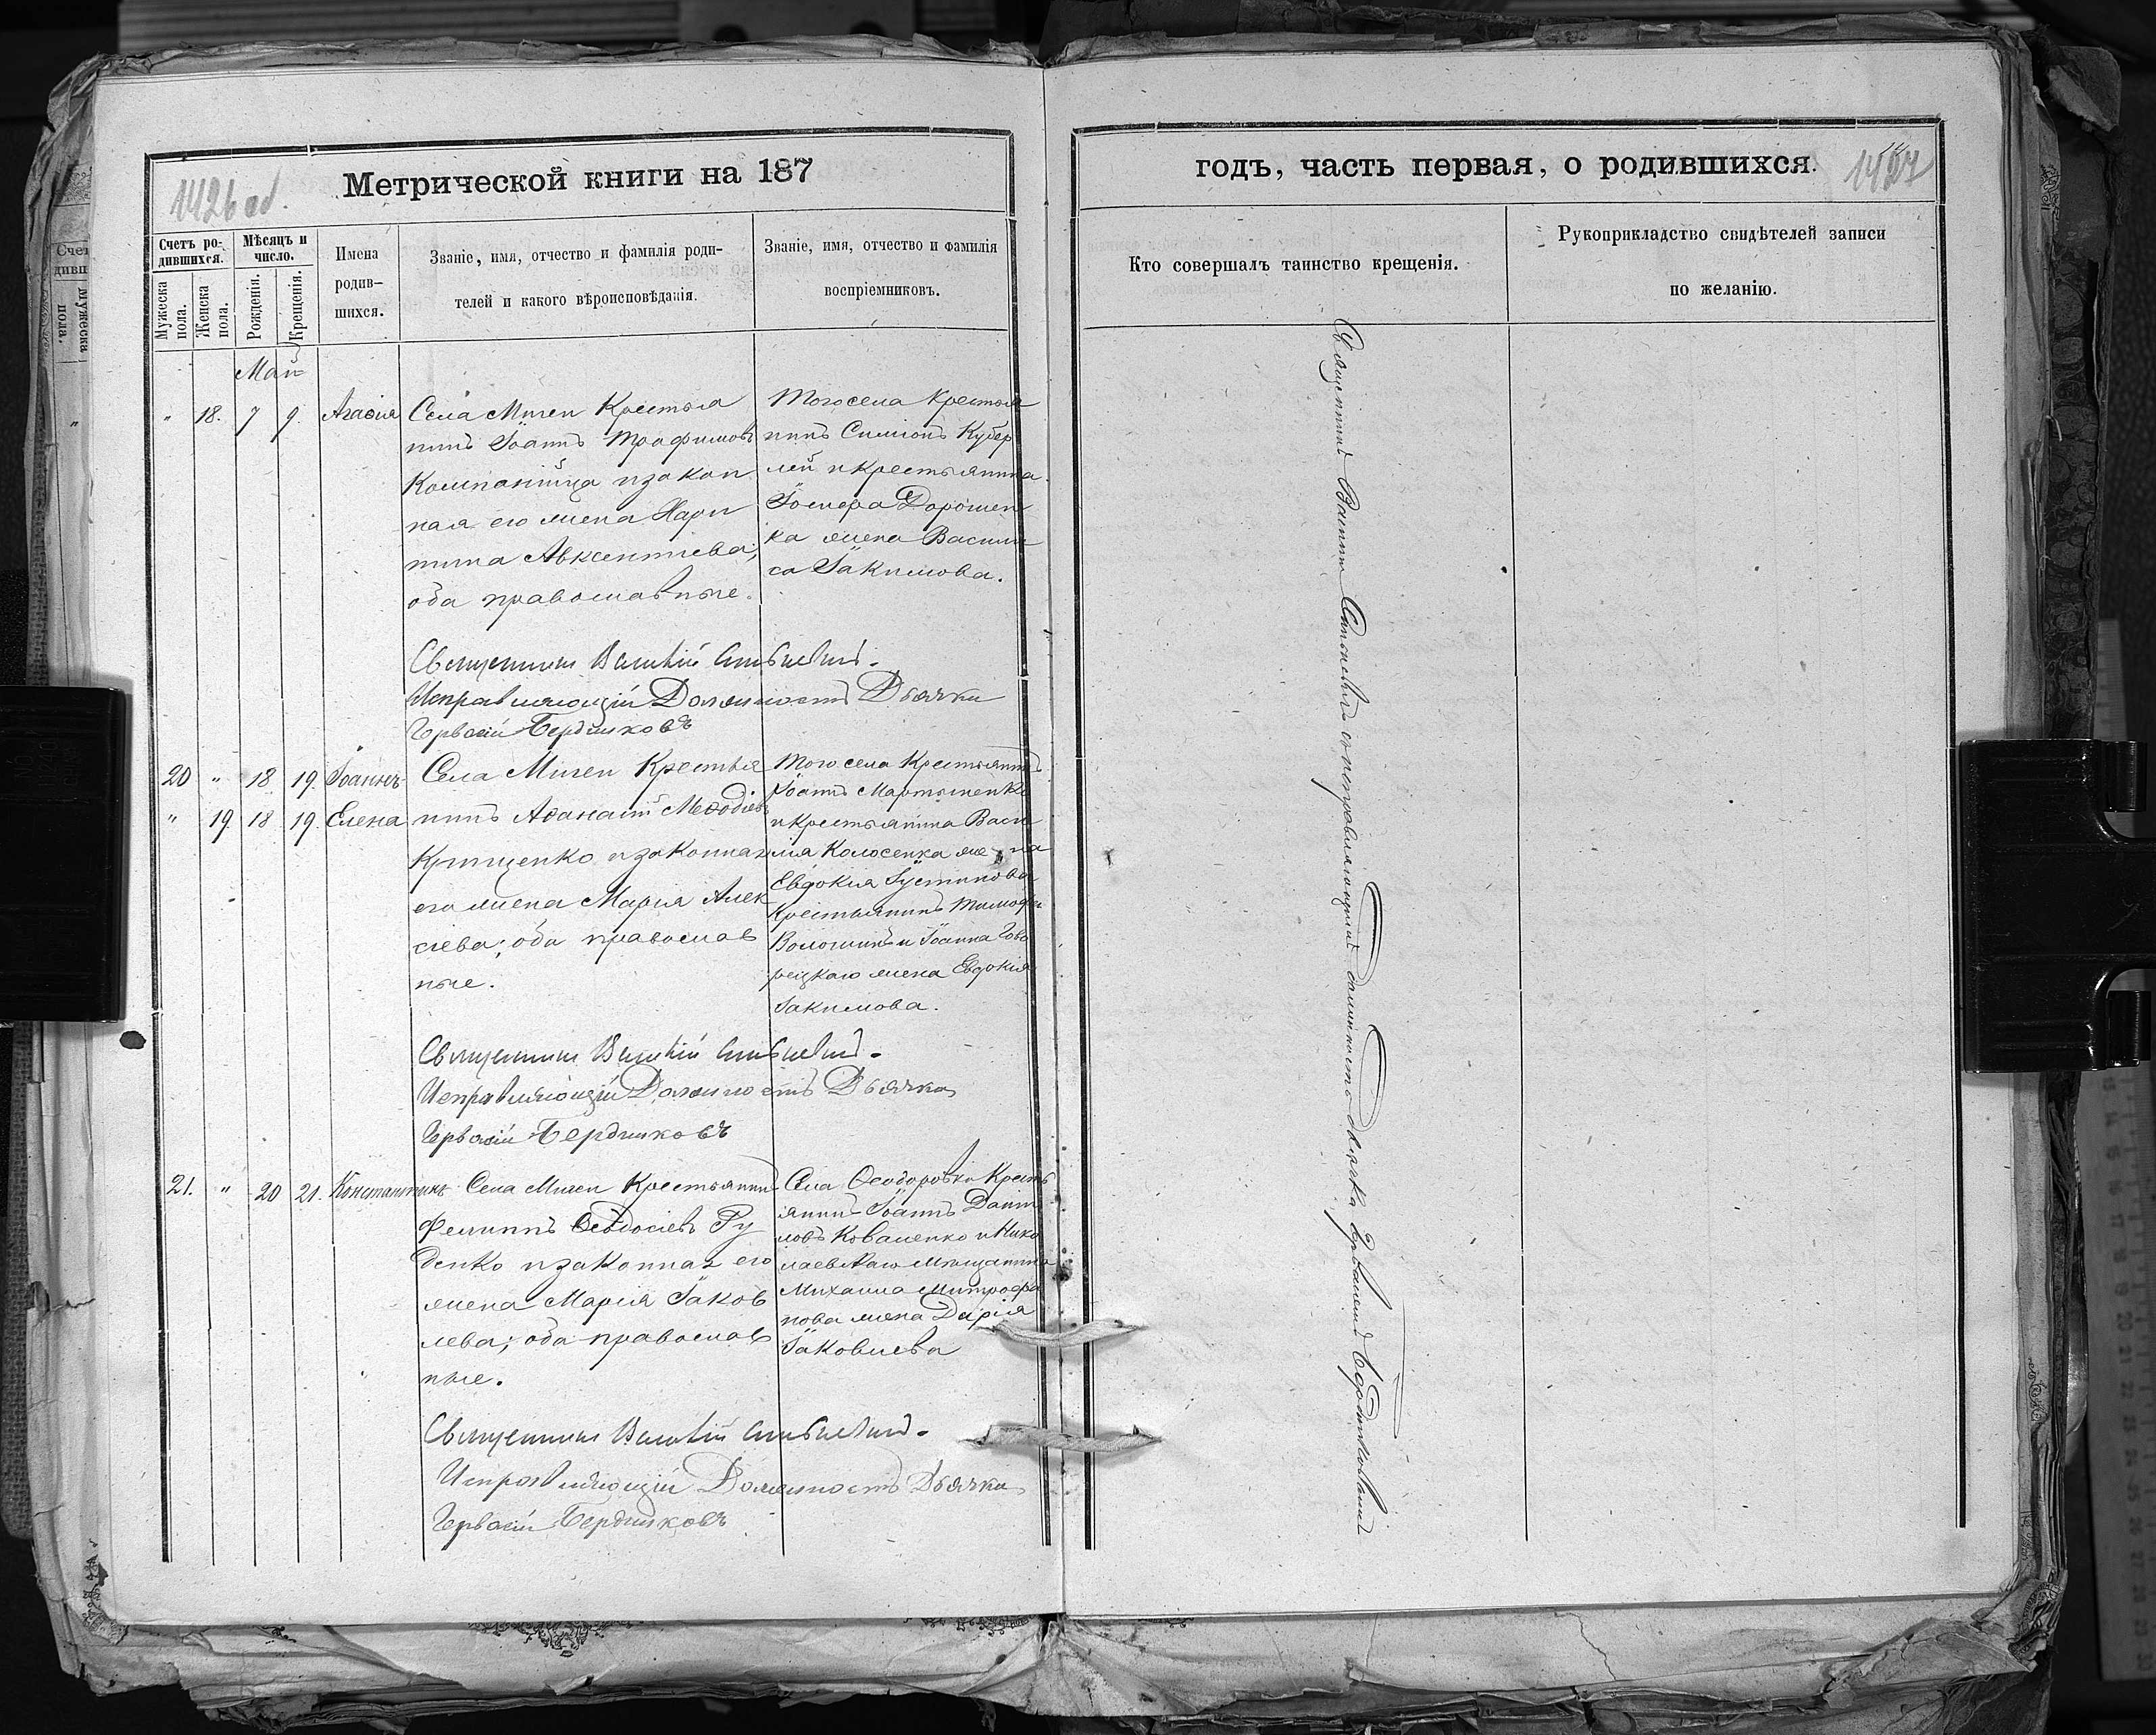 1426 об.
Метрической книги на 187
Счетъ ро-
дившихся.
Мужеска
пола.
Женска
пола.
Мѣсяцъ и
число.
Рожденія.
Крещенія.
Имена
родив-
шихся.
Званіе, имя, отчество и фамилія роди-
телей и какого вѣроисповѣданія.
Званіе, имя, отчество и фамилія
воспріемниковъ.
Май
" 18. 7 9. Агафія
Села Мигеи Крестья
нинъ Іоаннъ Трофимовъ
Компанійца и закон
ная его жена Хари
тина Авксентіева;
оба православные.
Того села Крестья
нинъ Симеонъ
и Крестьянина
Дорошен
ка жена Васили
са Іакимова.
Священникъ Василій
Исправляющій Должность Дьячка
Гервасій Бердниковъ
20 " 18 19. Іоаннъ
" 19. 18 19. Елена
Села Мигеи Крестья
нинъ Аѳанасій Меѳодіевъ
Грищенко и законная
его жена Марія Алек
сіева; оба православ
ные.
Того села Крестьянинъ
Іоаннъ Мартыненко
и Крестьянина Васи
лія Колосенка жена
Евдокія Іустинова
Крестьянинъ Тимофей
Волошинъ и Іоанна Гово
рецкаго жена Евдокія
Іакимова.
Священникъ Василій
Исправляющій Должность Дьячка
Гервасій Бердниковъ
21. " 20 21. Константинъ
Села Мигеи Крестьянинъ
Филиппъ Ѳеодосіевъ Ру
денко и законная его
жена Марія Іаков
лева; оба православ
ные.
Села Ѳеодоровки Кресть
янинъ Іоаннъ Дании
ловъ Коваленко и Нико
лаевскаго мѣщанина
Михаила Митрофа
нова жена Дарія
Іаковлева
Священникъ Василій
Исправляющій Должность Дьячка
Гервасій Бердниковъ
1427
годъ, часть первая, о родившихся.
Кто совершалъ таинство крещенія.
Рукоприкладство свидѣтелей записи
по желанію.
Священникъ Василій с исправляющимъ должность дьячка Гервасіемъ Бердниковымъ